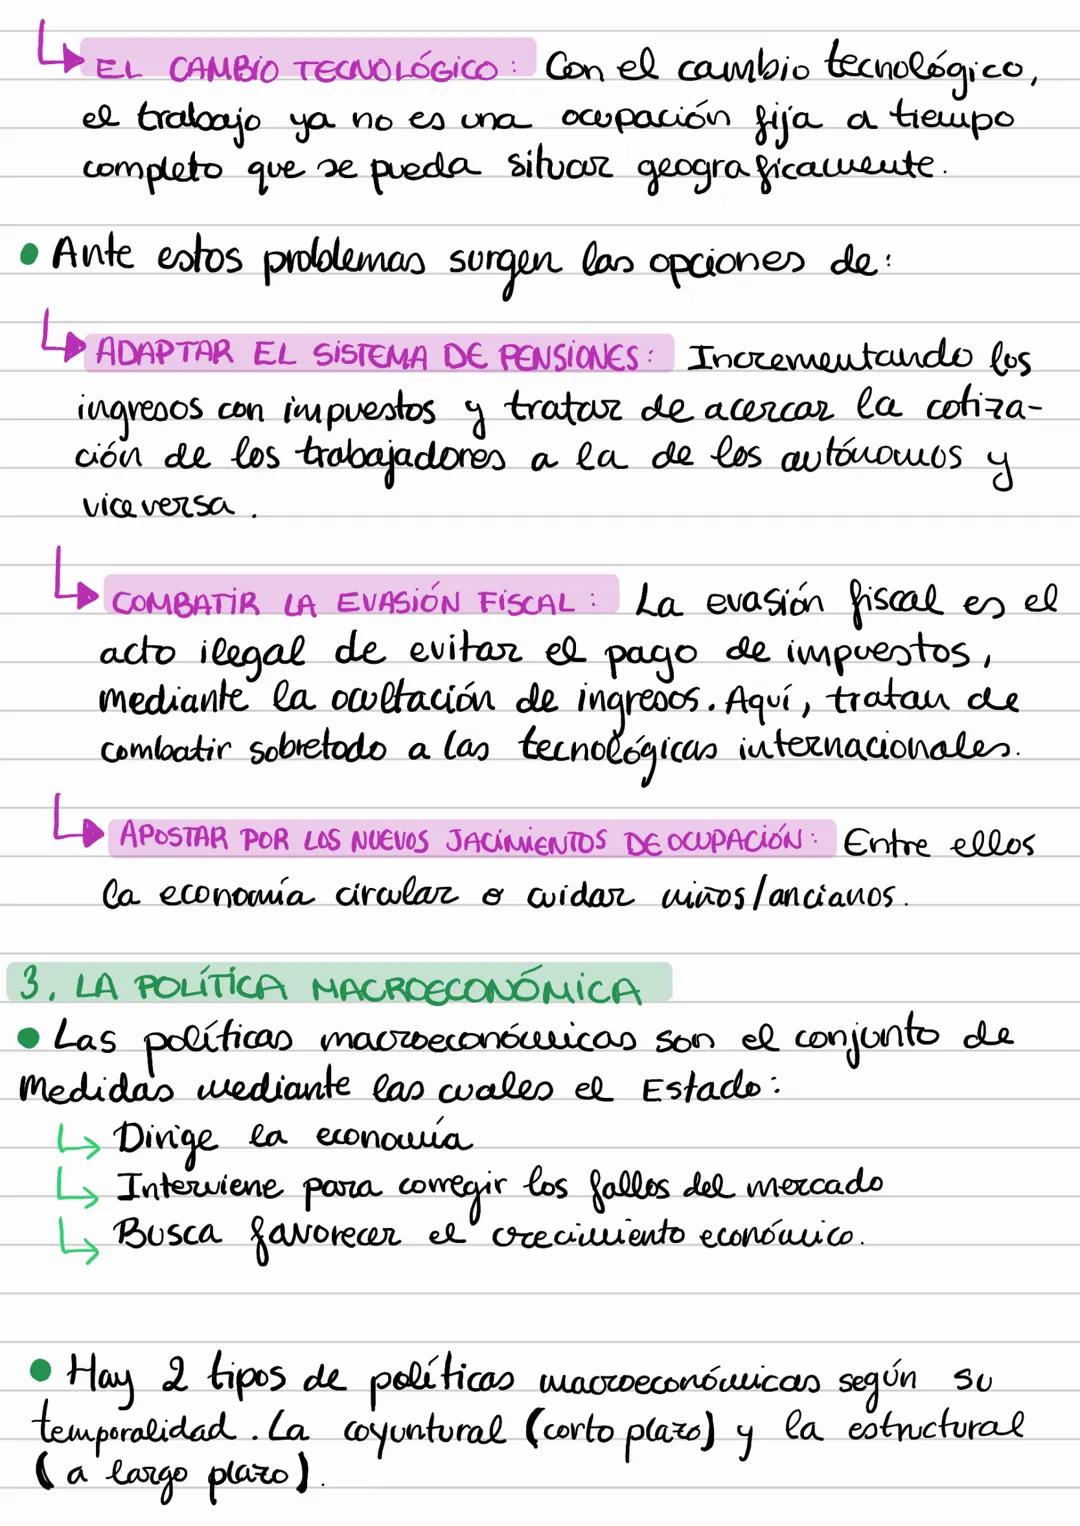 EL CAMBIO TECNOLÓGICO: Con el cambio tecnológico,
el trabajo ya no es una ocupación fija a tiempo
completo que se pueda situar geograficamente.
• Ante estos problemas surgen las opciones de:
ADAPTAR EL SISTEMA DE PENSIONES: Incrementando los
ingresos con impuestos y tratar de acercar la cotiza-
ción de los trabajadores a la de los autónomos y
viceversa.
COMBATIR LA EVASIÓN FISCAL: La evasión fiscal es el
acto ilegal de evitar el pago de impuestos,
mediante la ocultación de ingresos. Aquí, tratan de
combatir sobretodo a las tecnológicas internacionales.
APOSTAR POR LOS NUEVOS JACIMIENTOS DE OCUPACIÓN: Entre ellos
la economía circular o cuidar niños/ancianos.
3. LA POLÍTICA MACROECONÓMICA
• Las políticas macroeconómicas son el conjunto de
medidas mediante las cuales el Estado:
↳ Dirige la economía
↳ Interviene para corregir los fallos del mercado
↳ Busca favorecer el crecimiento económico.
• Hay 2 tipos de políticas macroeconómicas según su
temporalidad. La coyuntural (corto plazo) y la estructural
(a largo plazo).